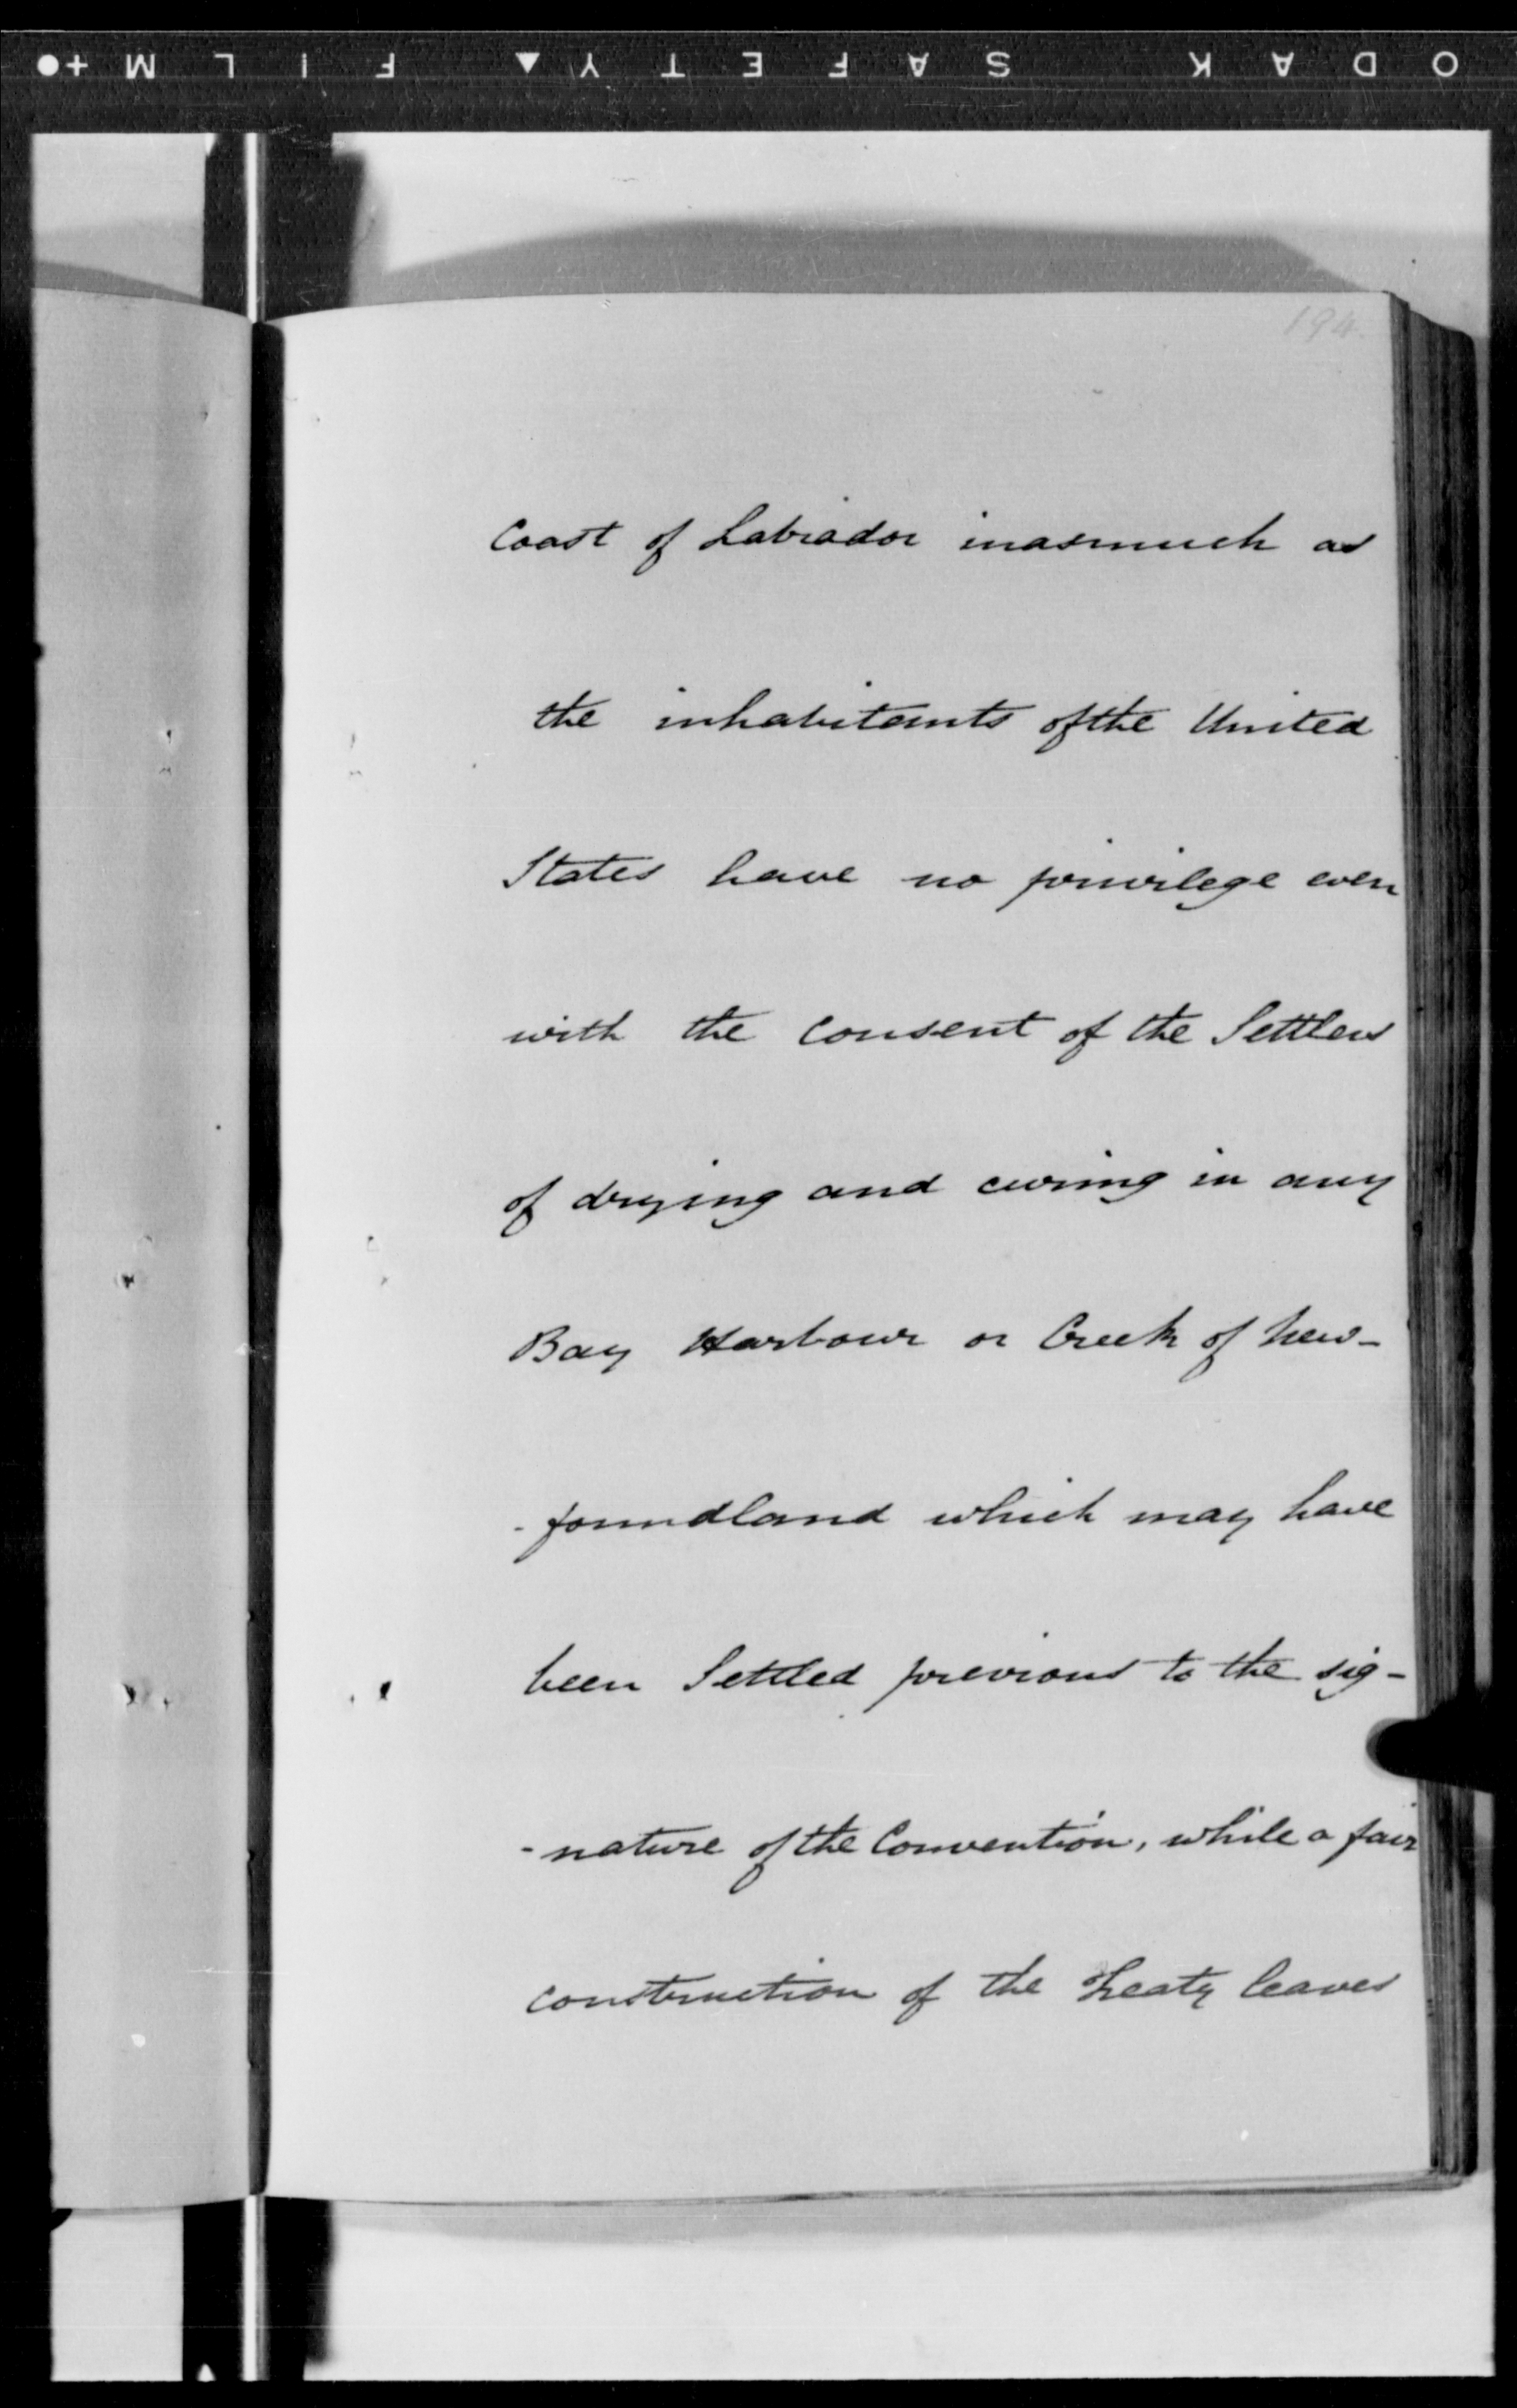 ODAK SAFETY ▲ FILM + ●
194.
Coast of Labrador inasmuch as
the inhabitants of the United
States have no privilege even
with the consent of the Settlers
of drying and curing in any
Bay Harbour or Creek of New-
-foundland which may have
been Settled previous to the sig-
-nature of the Convention, while a fair
construction of the Treaty leaves